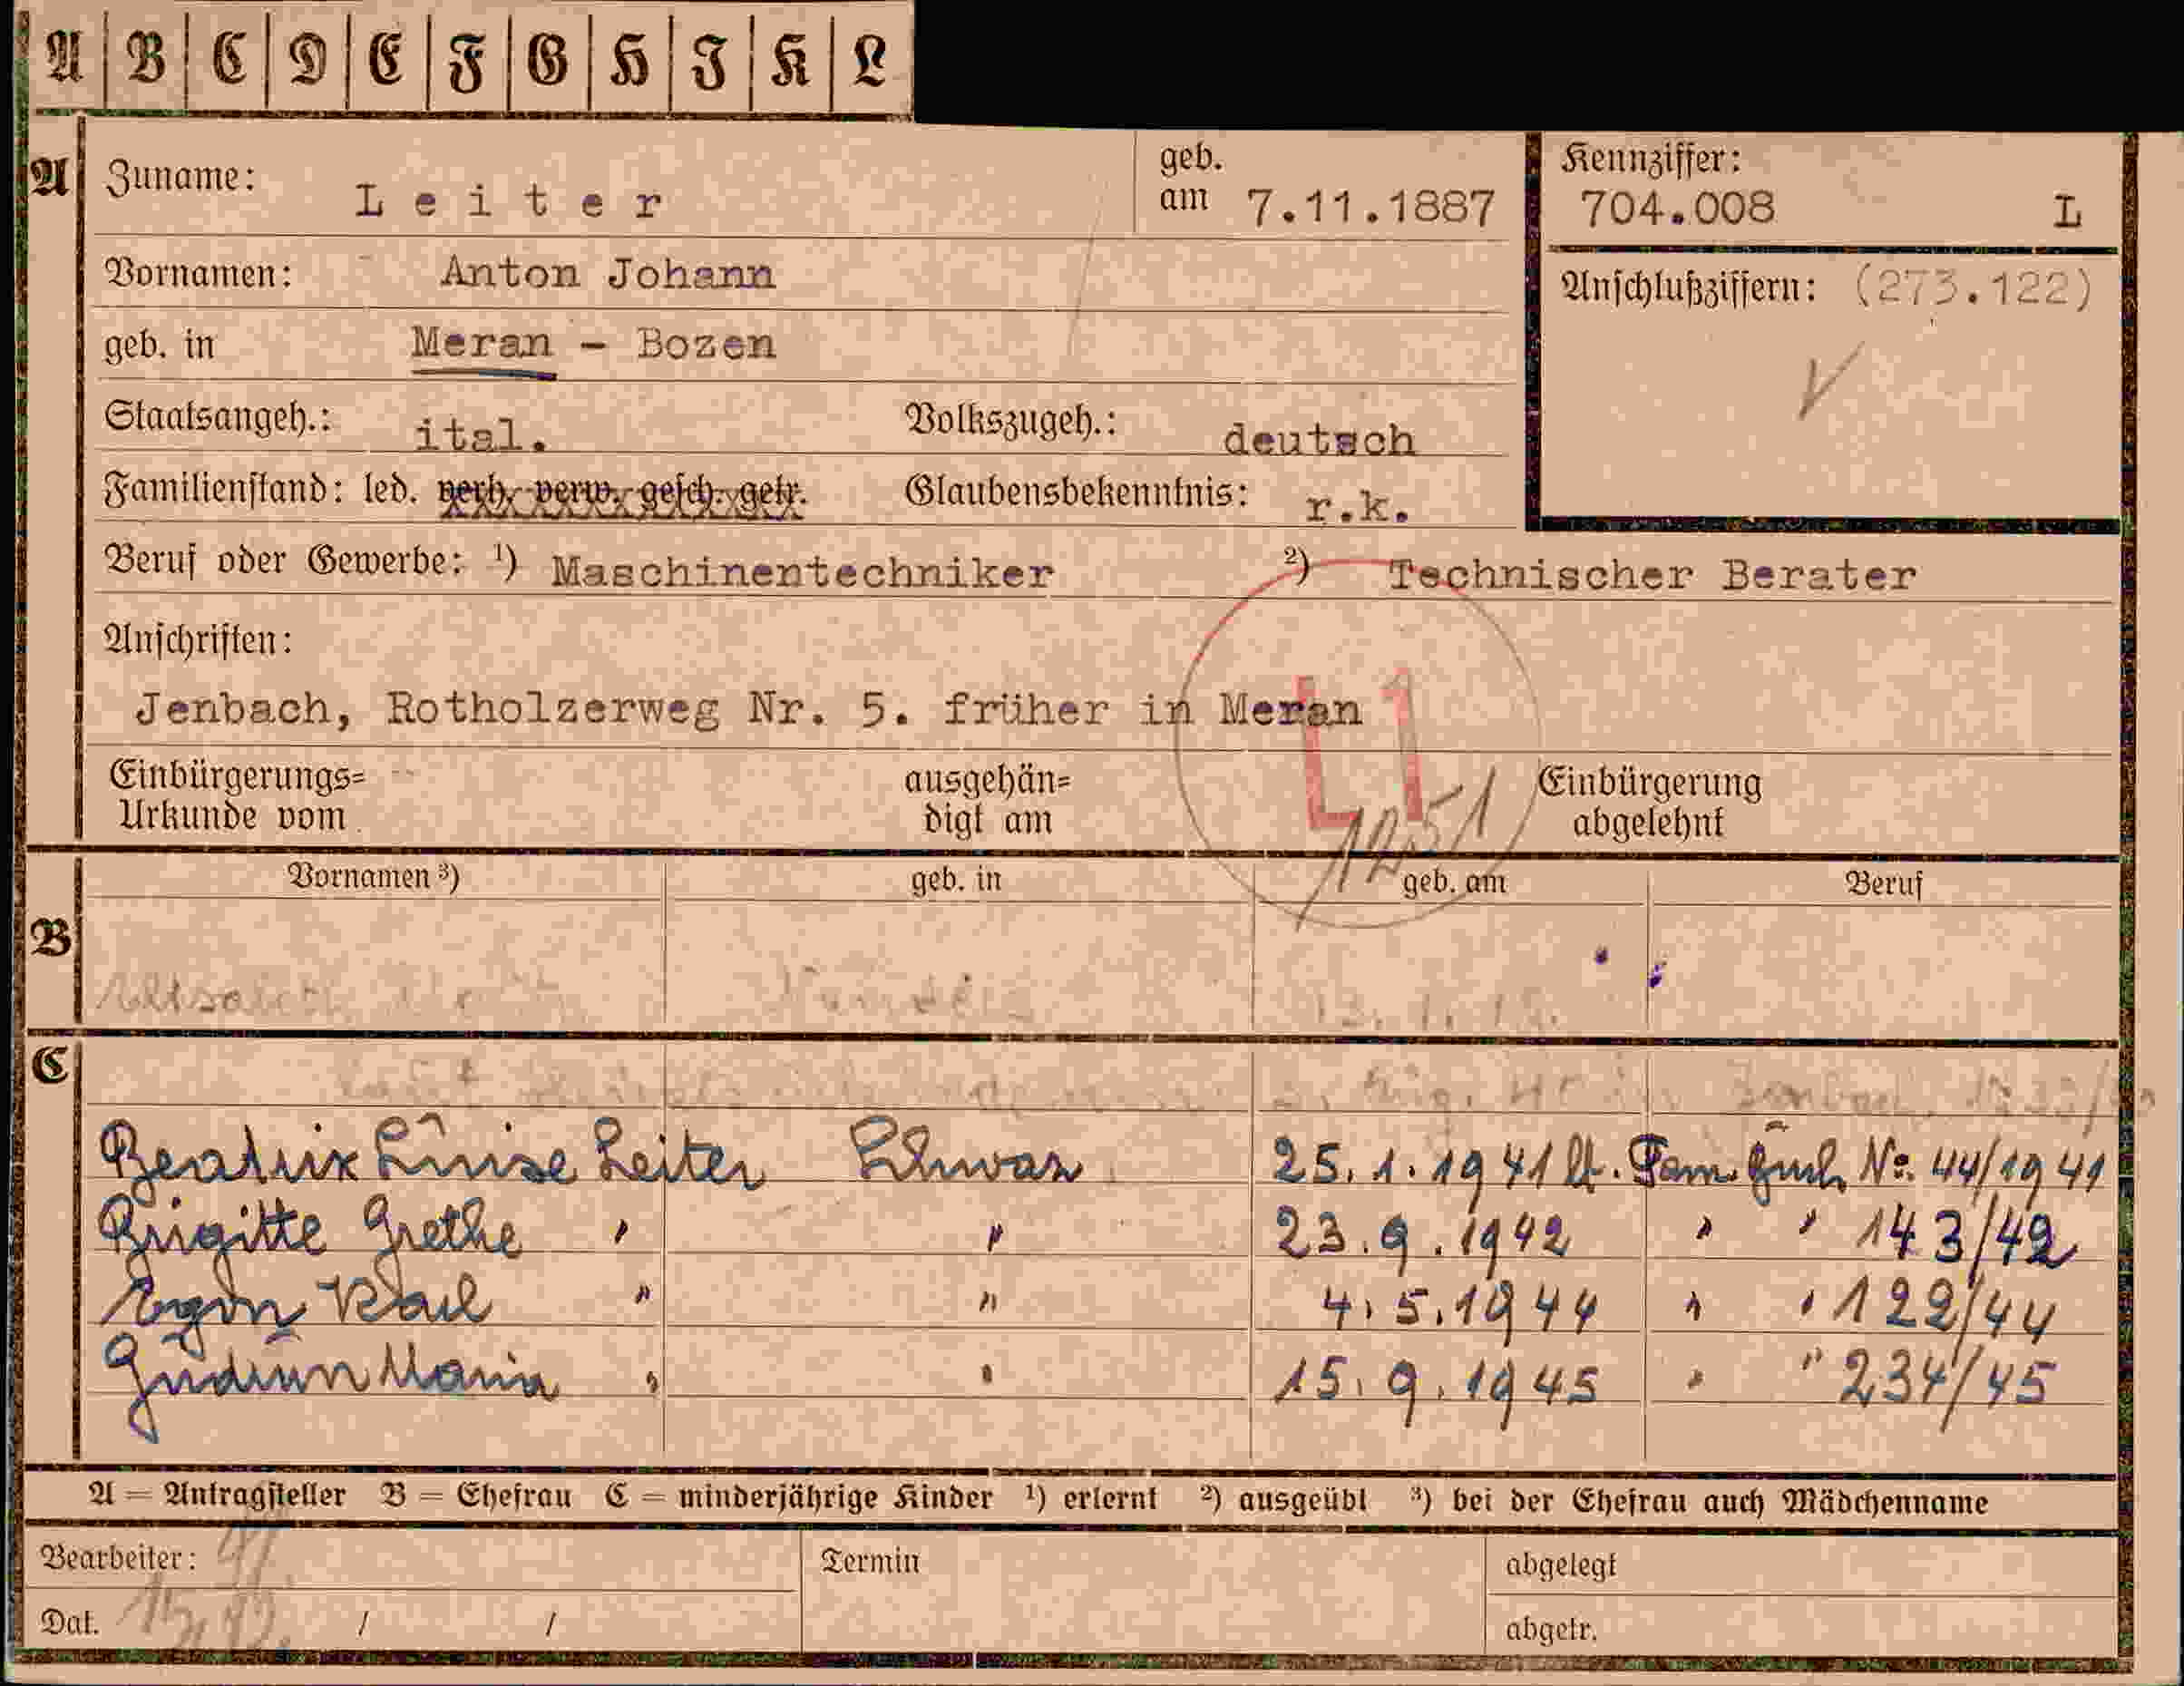 A B C D E F G H I K L
A Zuname: Leiter geb. am 7.11.1887 Kennziffer: 704.008 L
Vornamen: Anton Johann Anschlußziffern: (273.122)
geb. in Meran - Bozen
Staatsangeh.: ital. Volkszugeh.: deutsch
Familienstand: led. verh. verw. gesch. getr. Glaubensbekenntnis: r.k.
Beruf oder Gewerbe: ¹) Maschinentechniker ²) Technischer Berater
Anschriften:
Jenbach, Rotholzerweg Nr. 5. früher in Meran
L1
1251
Einbürgerungs= ausgehän= Einbürgerung
Urkunde vom digt am abgelehnt
Vornamen ³) geb. in geb. am Beruf
B
C
Beatrix Luise Leiter Schwaz 25.1.1941 lt. Fam. Buch No. 44/1941
Brigitte Grethe " " 23.9.1942 " " 143/42
Egon Karl " " 4.5.1944 " " 122/44
Gudrun Maria " " 15.9.1945 " " 234/45
A = Antragsteller B = Ehefrau C = minderjährige Kinder ¹) erlernt ²) ausgeübt ³) bei der Ehefrau auch Mädchenname
Bearbeiter: Termin abgelegt
Dat. / / abgetr.